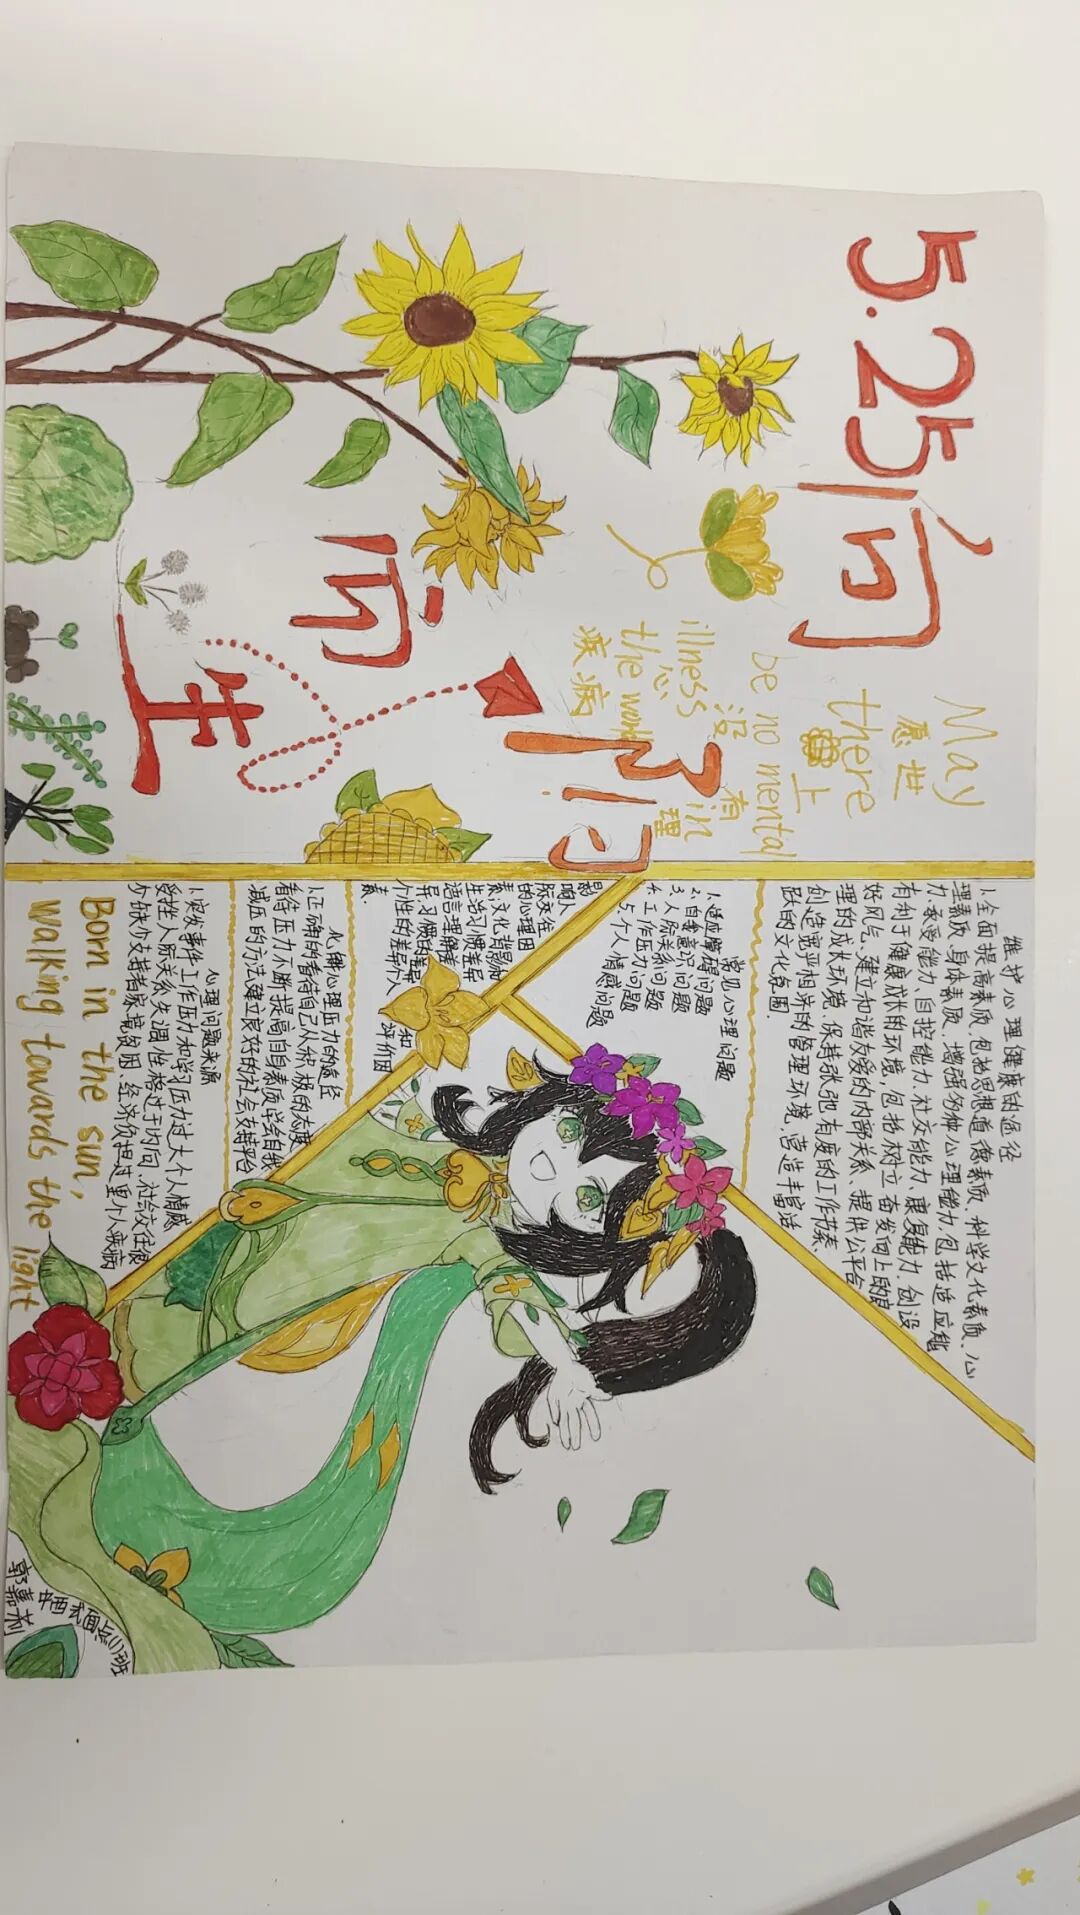 5.25
向阳
而生
May
愿世
there
上
be no mental
没有
illness in
心理
the world
疾病
维护心理健康的途径
1.全面提高素质,包括思想道德素质、科学文化素质、心
理素质、身体素质,增强多种心理能力,包括适应能
力、承受能力、自控能力、社交能力、康复能力、创设
有利于健康成长的环境,包括树立奋发向上的良
好风气,建立和谐友爱的内部关系、提供公平合
理的成长环境、保持张弛有度的工作节奏、
创造宽严相济的管理环境,营造丰富活
跃的文化氛围.
常见心理问题
1.适应障碍问题
2.自我意识问题
3.人际关系问题
4.工作压力问题
5.个人情感问题
影响人
际交往
的心理因
素文化背景和
生活习惯差异
语言理解差
异、习惯的差异
个性的差异个人
素
和
评价因
化解心理压力的途径
1.正确的看待自己从积极的态度
看待压力不断提高自身素质学会自我
减压的方法建立良好的社会支持平台
心理问题来源
1.突发事件工作压力和学习压力过大个人情感
受挫人际关系失调性格过于内向,社会交往很
少缺少支持者家境贫困,经济负担过重个人疾病
Born in the sun,
walking towards the light
中西式面点(1)班
郭嘉莉